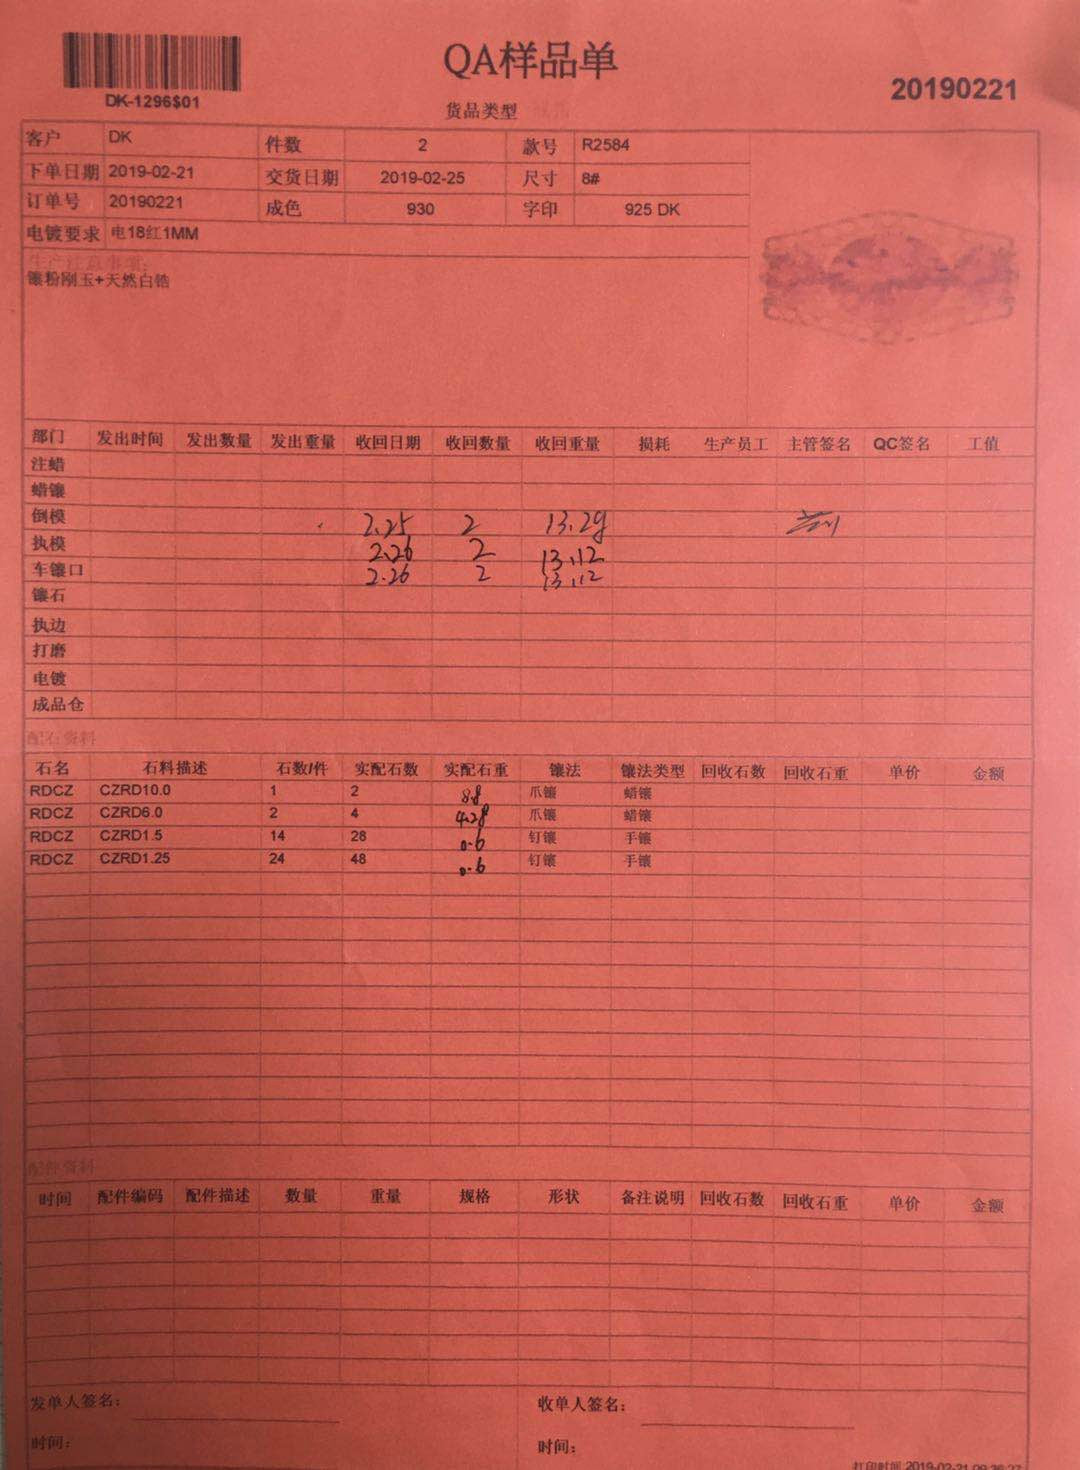 QA样品单
DK-1296$01
20190221
货品类型
客户 DK 件数 2 款号 R2584
下单日期 2019-02-21 交货日期 2019-02-25 尺寸 8#
订单号 20190221 成色 930 字印 925 DK
电镀要求 电18红1MM
生产注意事项:
镶粉刚玉+天然白锆
部门 发出时间 发出数量 发出重量 收回日期 收回数量 收回重量 损耗 生产员工 主管签名 QC签名 工值
注蜡
蜡镶
倒模 2.25 2 13.29
执模 2.26 2 13.12
车镶口 2.26 2 13.12
镶石
执边
打磨
电镀
成品仓
配石资料
石名 石料描述 石数/件 实配石数 实配石重 镶法 镶法类型 回收石数 回收石重 单价 金额
RDCZ CZRD10.0 1 2 8.8 爪镶 蜡镶
RDCZ CZRD6.0 2 4 4.28 爪镶 蜡镶
RDCZ CZRD1.5 14 28 0.6 钉镶 手镶
RDCZ CZRD1.25 24 48 0.6 钉镶 手镶
配件资料
时间 配件编码 配件描述 数量 重量 规格 形状 备注说明 回收石数 回收石重 单价 金额
发单人签名: 收单人签名:
时间: 时间:
打印时间 2019-02-21 09:36:27